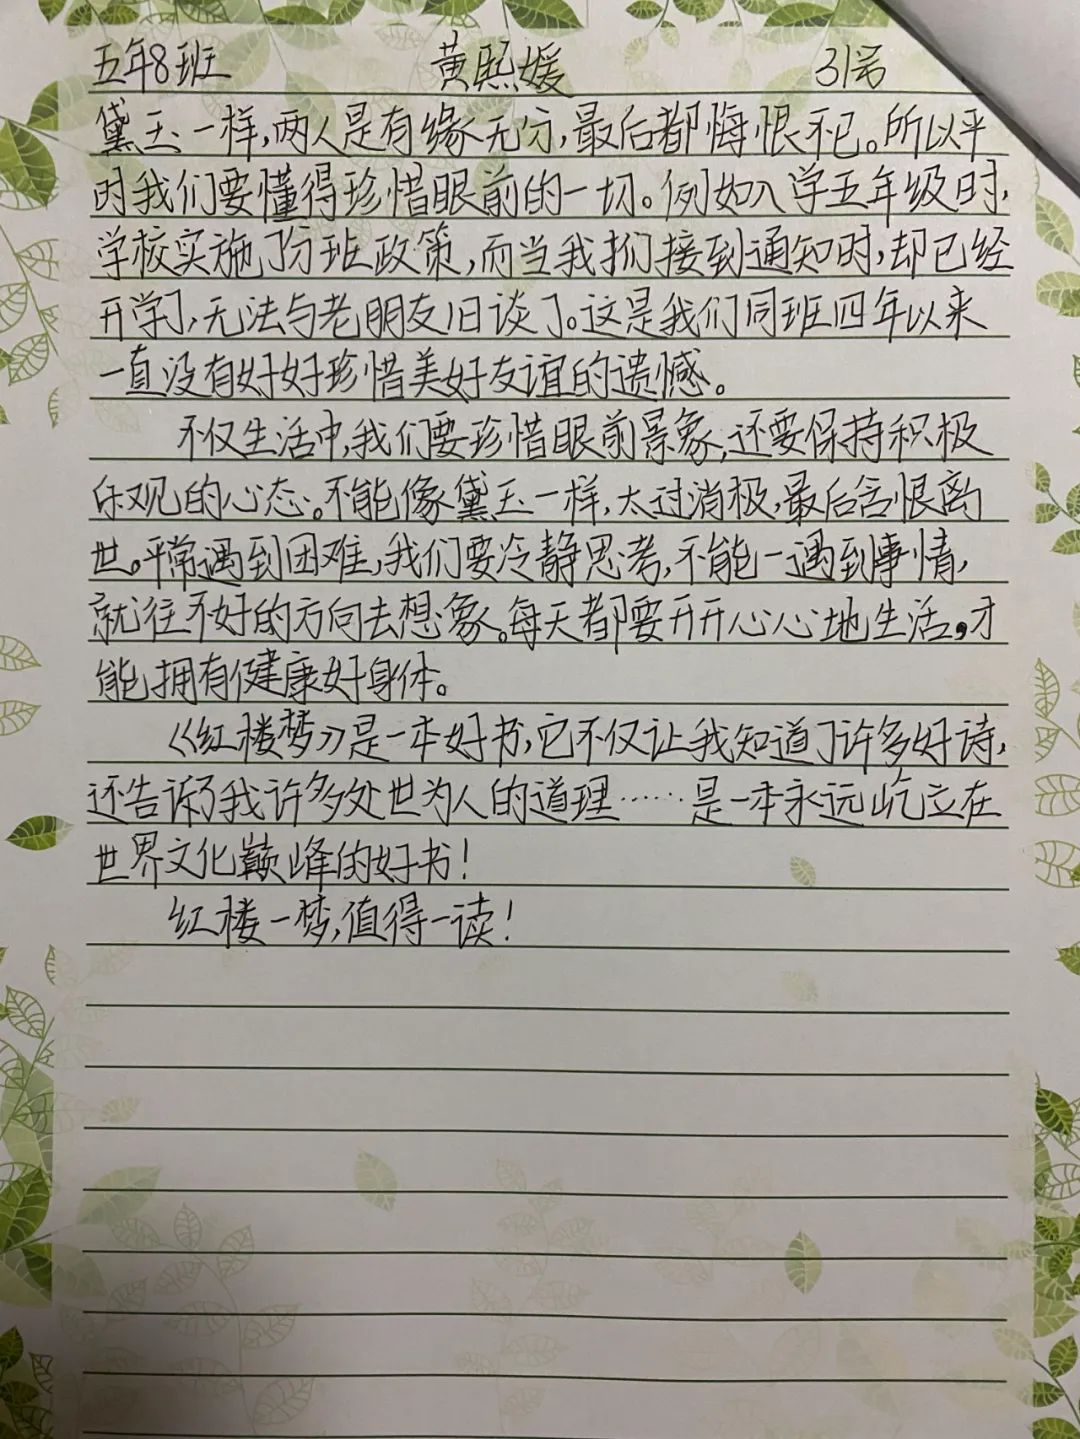 五年8班 黄熙媛 31号
黛玉一样,两人是有缘无分,最后都悔恨不已。所以平
时我们要懂得珍惜眼前的一切。例如入学五年级时,
学校实施了分班政策,而当我们接到通知时,却已经
开学了,无法与老朋友旧谈了。这是我们同班四年以来
一直没有好好珍惜美好友谊的遗憾。
不仅生活中,我们要珍惜眼前景象,还要保持积极
乐观的心态。不能像黛玉一样,太过消极,最后含恨离
世。平常遇到困难,我们要冷静思考,不能一遇到事情,
就往不好的方向去想象。每天都要开开心心地生活,才
能拥有健康好身体。
《红楼梦》是一本好书,它不仅让我知道了许多好诗,
还告诉了我许多处世为人的道理……是一本永远屹立在
世界文化巅峰的好书!
红楼一梦,值得一读!